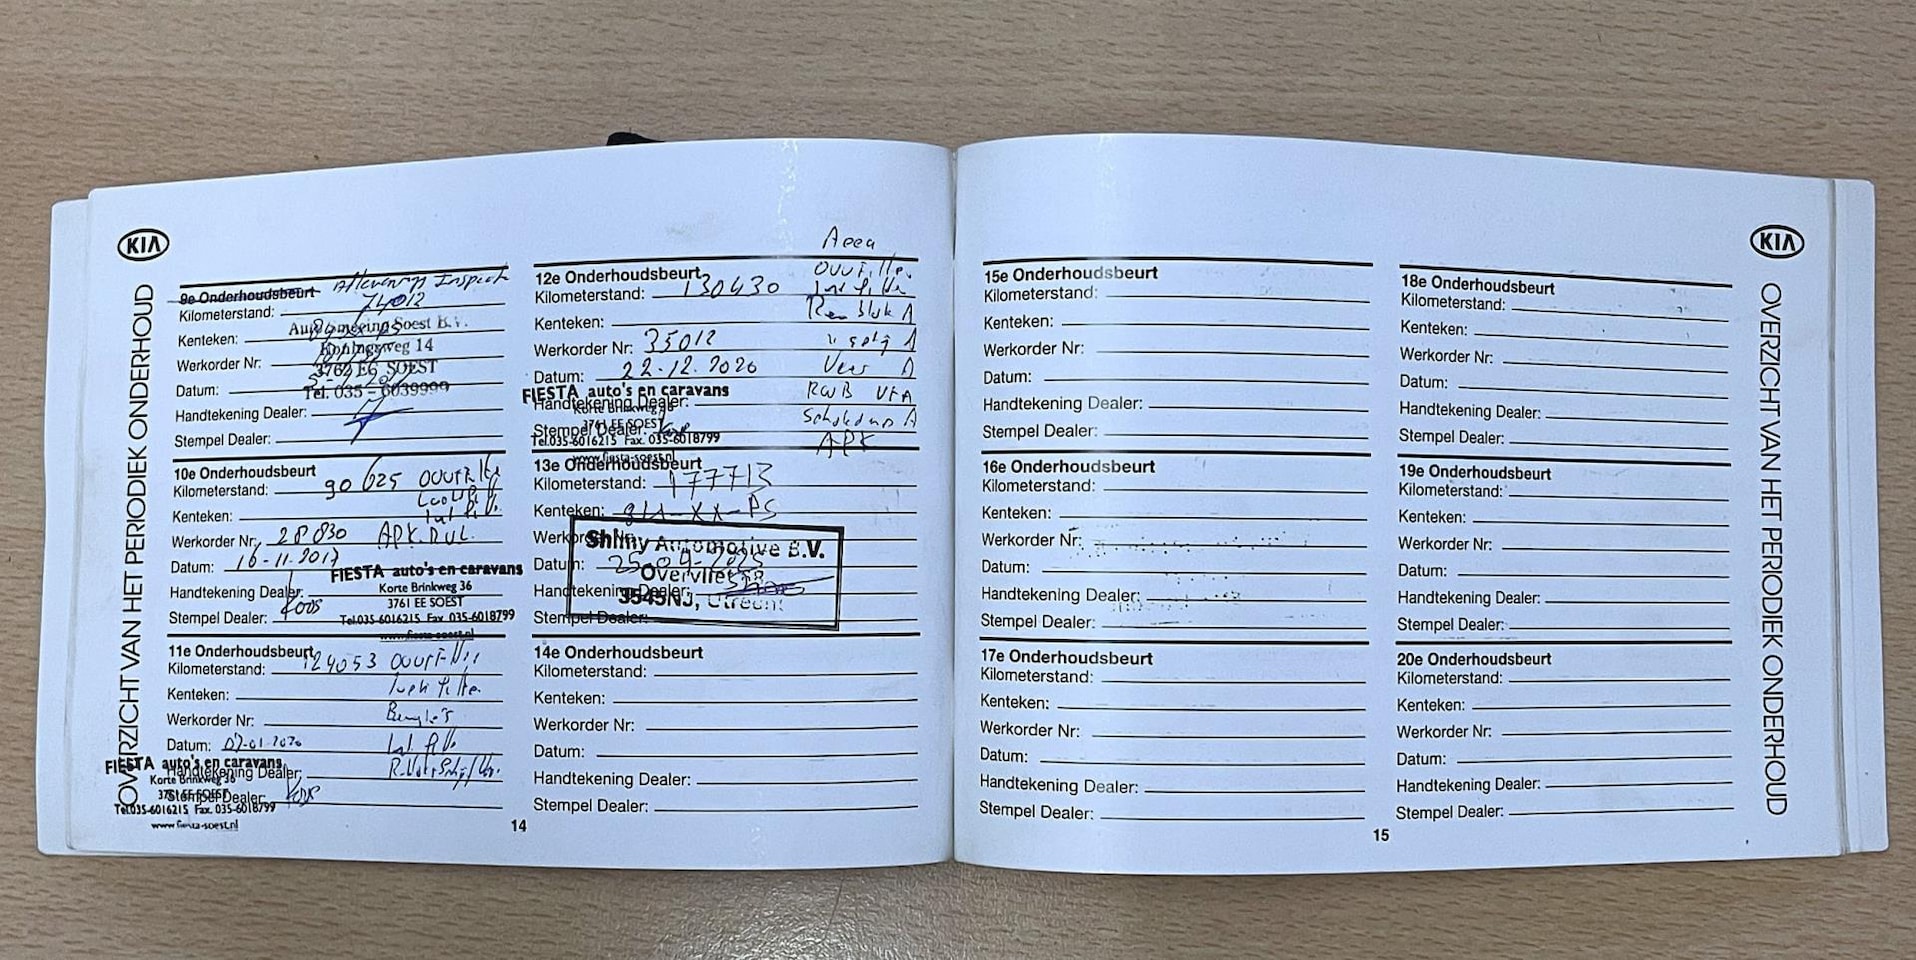 KIA
OVERZICHT VAN HET PERIODIEK ONDERHOUD
9e Onderhoudsbeurt
Kilometerstand: 74012
Kenteken:
Werkorder Nr:
Datum:
Handtekening Dealer:
Stempel Dealer:
Soest B.V.
Koningsweg 14
3762 EG SOEST
Tel. 035 - 6039999
10e Onderhoudsbeurt
Kilometerstand: 90625
Kenteken:
Werkorder Nr: 28830 APK
Datum: 16-11-2017
Handtekening Dealer:
Stempel Dealer:
FIESTA auto's en caravans
Korte Brinkweg 36
3761 EE SOEST
Tel.035-6016215 Fax. 035-6018799
www.fiesta-soest.nl
11e Onderhoudsbeurt
Kilometerstand: 124053
Kenteken:
Werkorder Nr:
Datum: 07-01-2020
Handtekening Dealer:
Stempel Dealer:
FIESTA auto's en caravans
Korte Brinkweg 36
3761 EE SOEST
Tel.035-6016215 Fax. 035-6018799
www.fiesta-soest.nl
12e Onderhoudsbeurt
Kilometerstand: 130430
Kenteken:
Werkorder Nr: 35012
Datum: 22-12-2020
Handtekening Dealer:
Stempel Dealer:
APK
FIESTA auto's en caravans
Korte Brinkweg 36
3761 EE SOEST
Tel.035-6016215 Fax. 035-6018799
www.fiesta-soest.nl
13e Onderhoudsbeurt
Kilometerstand: 177713
Kenteken:
Werkorder Nr:
Datum:
Handtekening Dealer:
Stempel Dealer:
Shiny Automotive B.V.
Overvliet
3545NJ, Utrecht
14e Onderhoudsbeurt
Kilometerstand:
Kenteken:
Werkorder Nr:
Datum:
Handtekening Dealer:
Stempel Dealer:
14
15e Onderhoudsbeurt
Kilometerstand:
Kenteken:
Werkorder Nr:
Datum:
Handtekening Dealer:
Stempel Dealer:
16e Onderhoudsbeurt
Kilometerstand:
Kenteken:
Werkorder Nr:
Datum:
Handtekening Dealer:
Stempel Dealer:
17e Onderhoudsbeurt
Kilometerstand:
Kenteken:
Werkorder Nr:
Datum:
Handtekening Dealer:
Stempel Dealer:
18e Onderhoudsbeurt
Kilometerstand:
Kenteken:
Werkorder Nr:
Datum:
Handtekening Dealer:
Stempel Dealer:
19e Onderhoudsbeurt
Kilometerstand:
Kenteken:
Werkorder Nr:
Datum:
Handtekening Dealer:
Stempel Dealer:
20e Onderhoudsbeurt
Kilometerstand:
Kenteken:
Werkorder Nr:
Datum:
Handtekening Dealer:
Stempel Dealer:
15
KIA
OVERZICHT VAN HET PERIODIEK ONDERHOUD